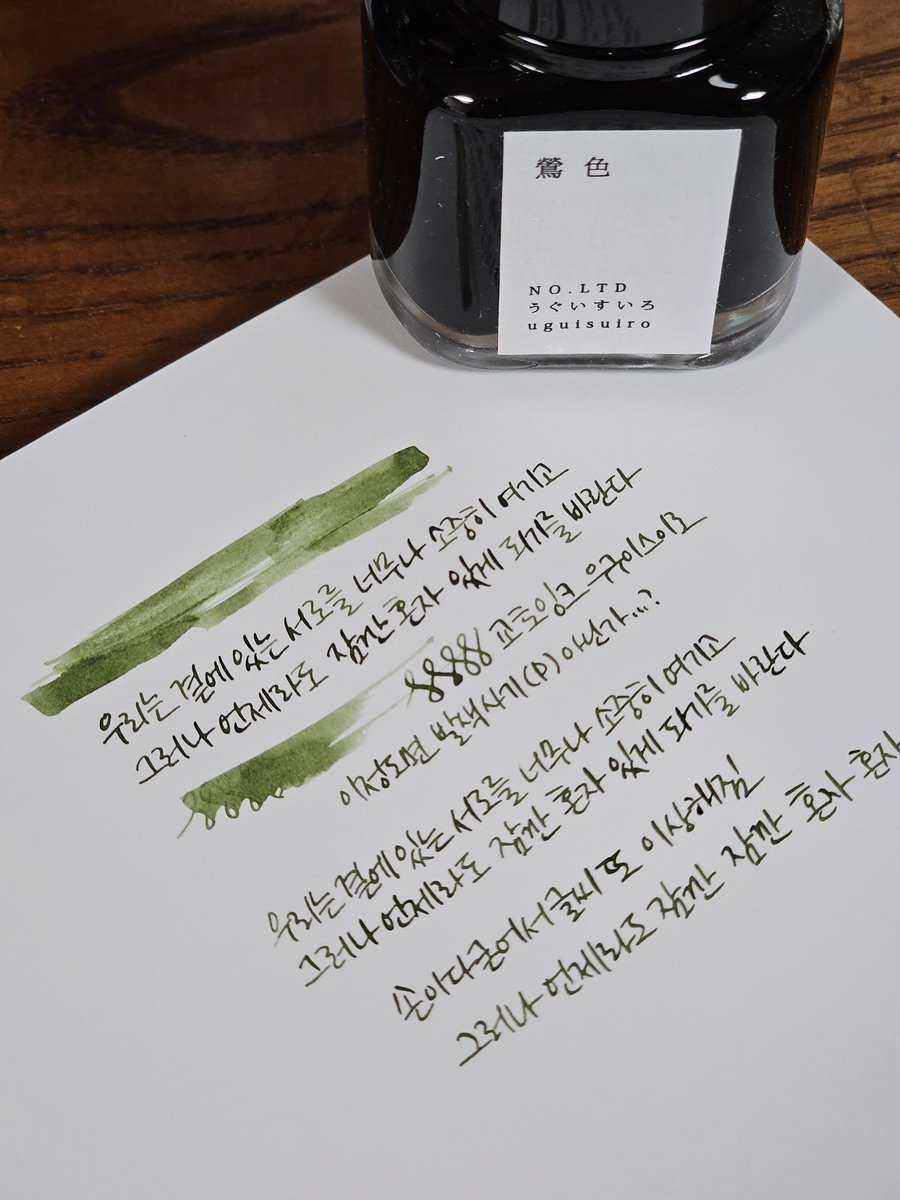 鶯色
NO.LTD
うぐいすいろ
uguisuiro
우리는 곁에 있는 서로를 너무나 소중히 여기고
그러나 언제라도 잠깐 혼자 있게 되기를 바란다
8888 교토잉크 우구이스이로
이정도면 발색사기(P) 아닌가...?
8888
우리는 곁에 있는 서로를 너무나 소중히 여기고
그러나 언제라도 잠깐 혼자 있게 되기를 바란다
손아다굳어서 글씨 또 이상해짐
그러나 언제라도 잠깐 잠깐 혼자 혼자